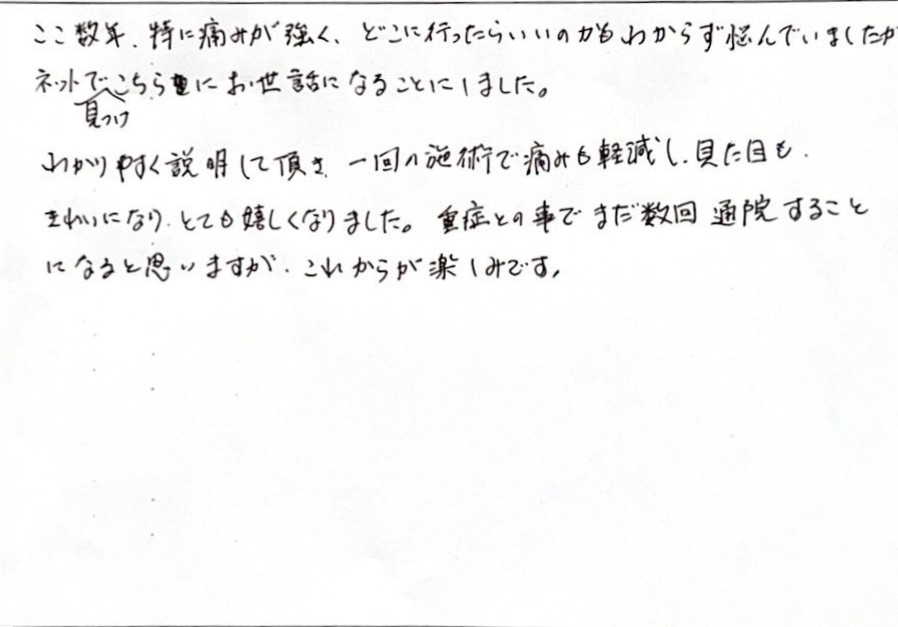 ここ数年、特に痛みが強く、どこに行ったらいいのかもわからず悩んでいましたが
ネットで見つけこちらにお世話になることにしました。
わかりやすく説明して頂き、一回の施術で痛みも軽減し、見た目も、
きれいになり、とても嬉しくなりました。重症との事でまだ数回通院すること
になると思いますが、これからが楽しみです。